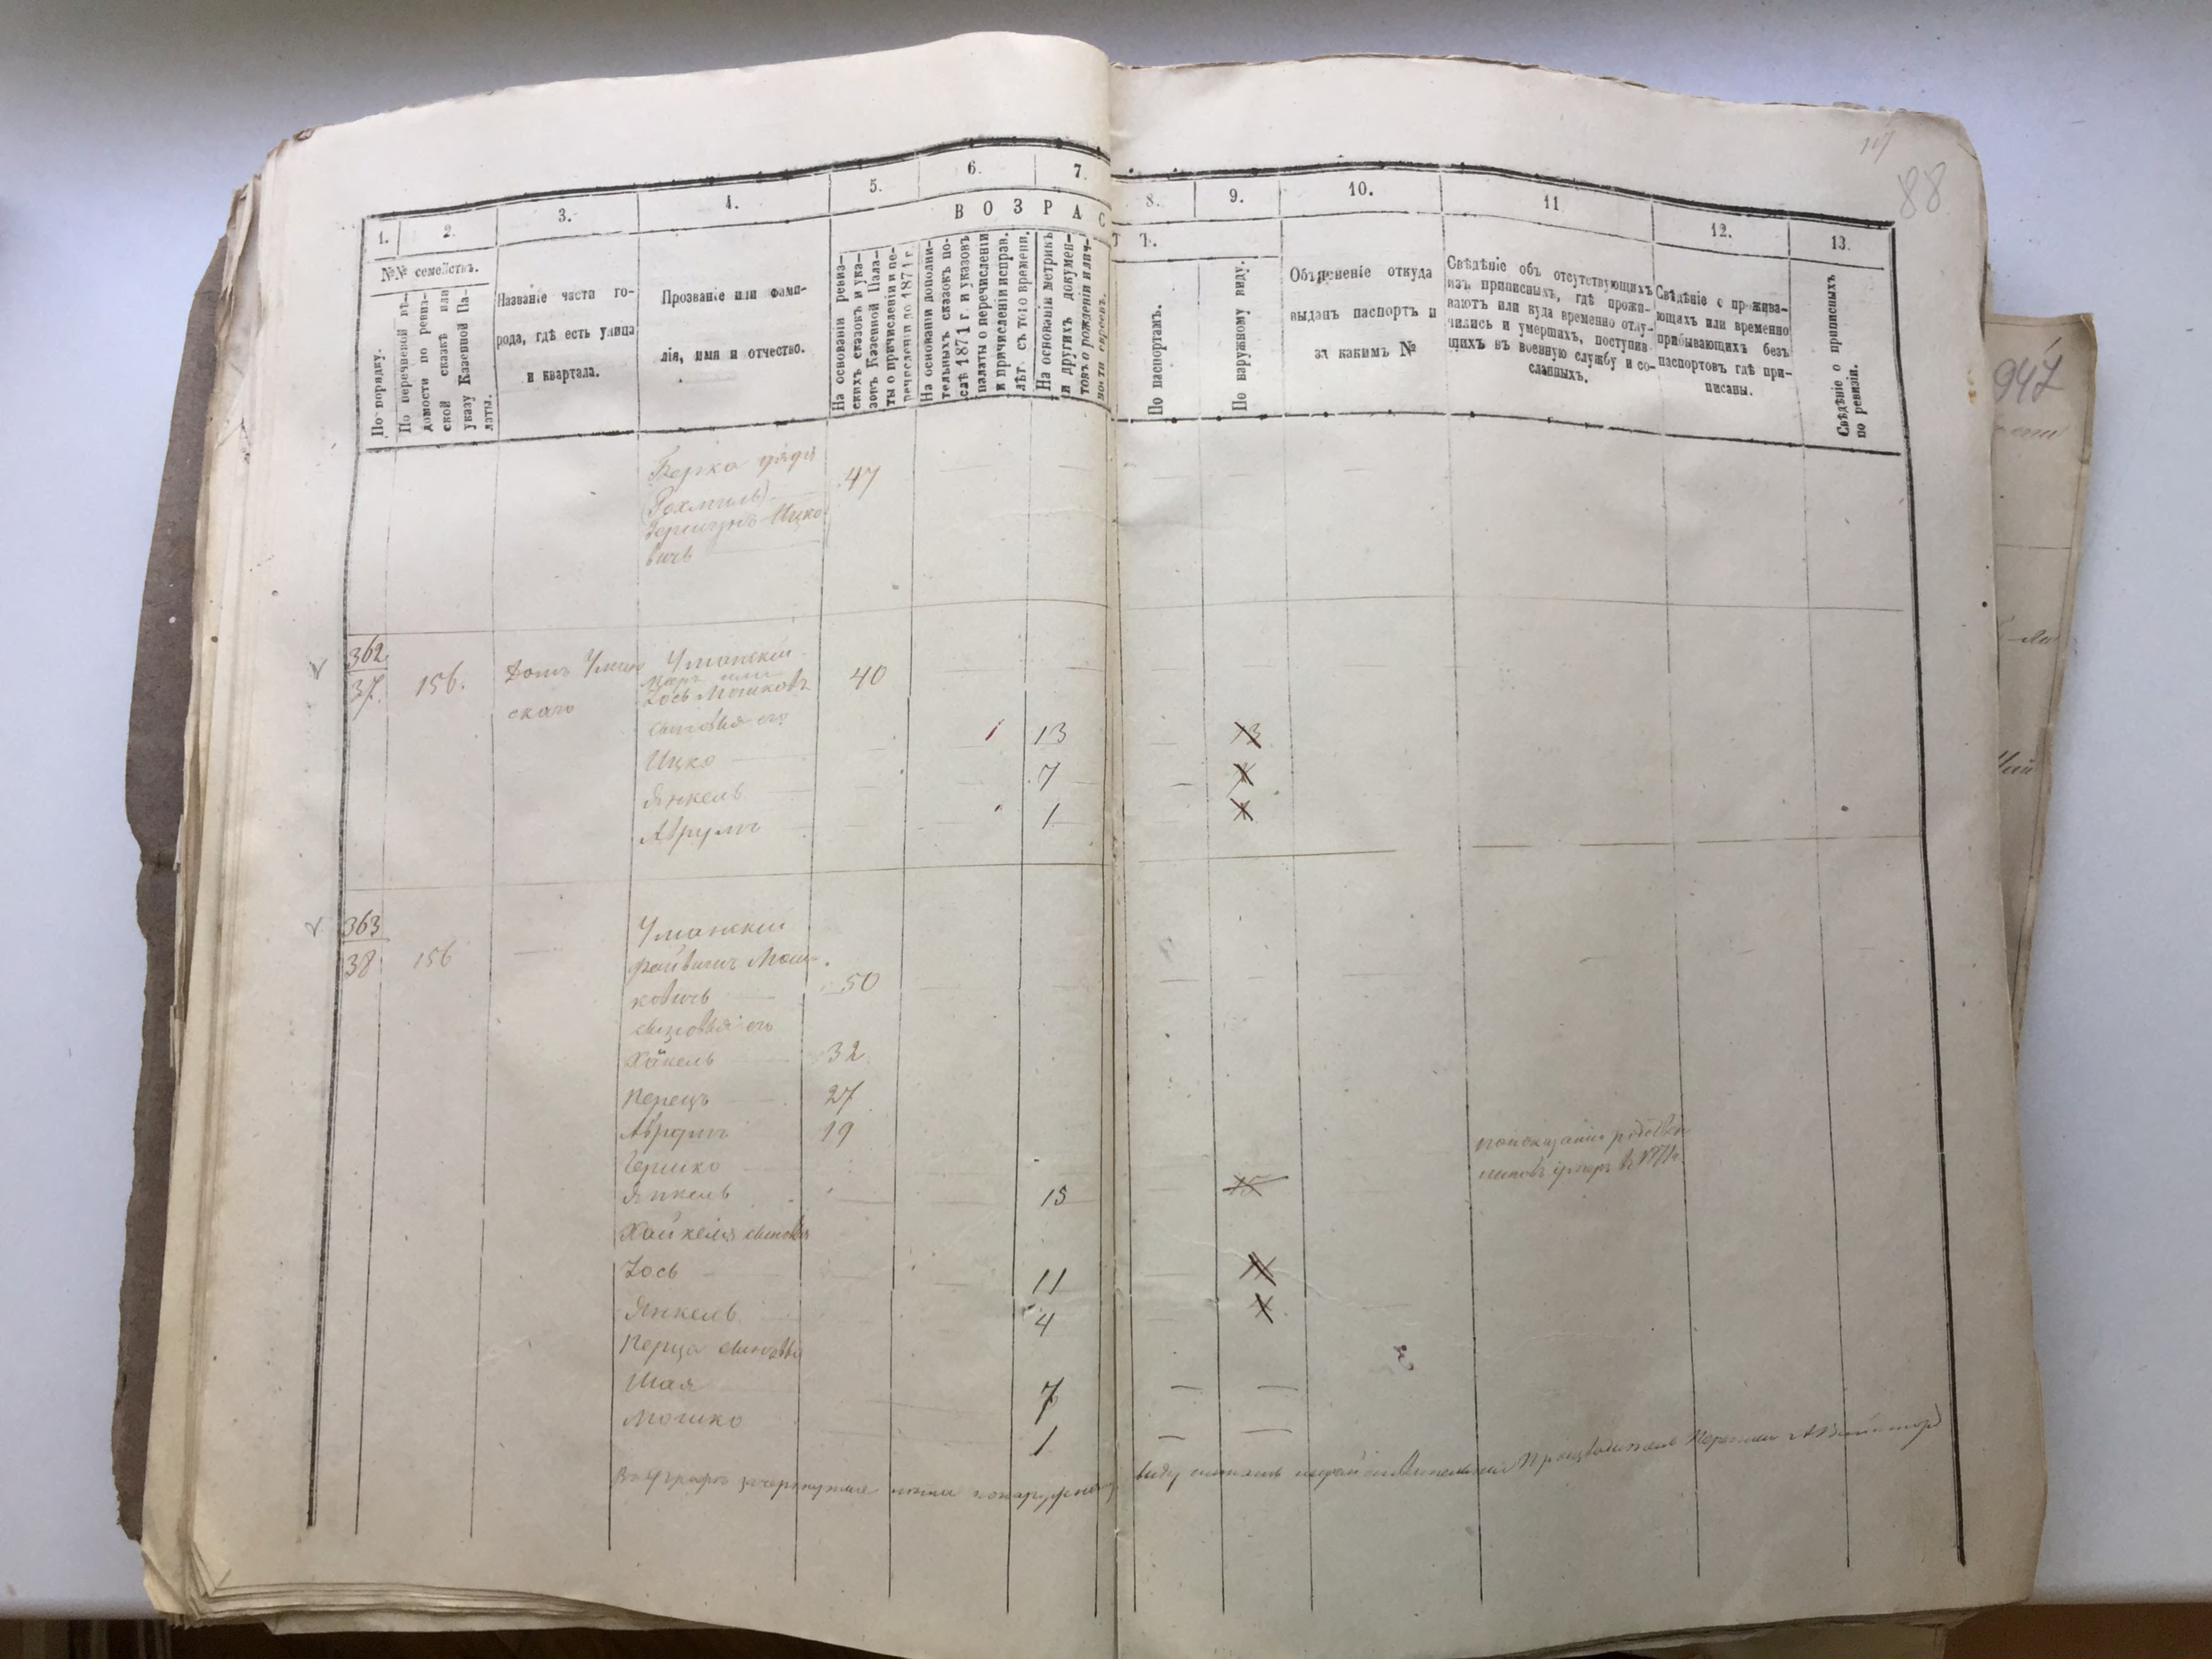 117
88
1.
2.
3.
4.
5.
6.
7.
8.
9.
10.
11
12.
13.
ВОЗРАСТЪ.
№№ семействъ.
По порядку.
По перечневой вѣ-
домости по ревиз-
ской сказкѣ или
указу Казенной Па-
латы.
Названіе части го-
рода, гдѣ есть улица
и квартала.
Прозваніе или фами-
лія, имя и отчество.
На основаніи ревиз-
скихъ сказокъ и ука-
зовъ Казенной Пала-
ты о причисленіи и пе-
речисленіи до 1871 г.
На основаніи дополни-
тельныхъ сказокъ по-
слѣ 1871 г. и указовъ
палаты о перечисленіи
и причисленіи исправ.
лѣт. съ того времени.
На основаніи метрикъ
и другихъ докумен-
товъ о рожденіи и лич-
ности евреевъ.
По паспортамъ.
По наружному виду.
Объясненіе откуда
выданъ паспортъ и
за какимъ №
Свѣдѣніе объ отсутствующихъ
изъ приписныхъ, гдѣ прожи-
ваютъ или куда временно отлу-
чились и умершихъ, поступив-
шихъ въ военную службу и со-
сланныхъ.
Свѣдѣніе о прожива-
ющихъ или временно
прибывающихъ безъ
паспортовъ гдѣ при-
писаны.
Свѣдѣніе о приписныхъ
по ревизіи.
947
Берко дядя
47
Гершунъ Ицко
вичъ
362
37.
156.
Домъ Уман
скаго
Уманскій
или
Іось Мошковъ
40
сыновья его
Ицко
13
13
Янкель
7
7
Аврумъ
1
1
363
38
156
Уманскій
Файвишъ Мош-
ковичъ
50
сыновья его
Хайкель
32
Перецъ
27
Аврумъ
19
Гершко
по показанію родствен
никовъ умеръ въ 1871 г.
Янкель
15
15
Хайкеля сыновья
Іось
11
11
Янкель
4
4
Перца сыновья
Шая
7
Мошко
1
В 9 графѣ зачеркнутые лѣта по наружному виду считать недѣйствительными Производитель Переписи